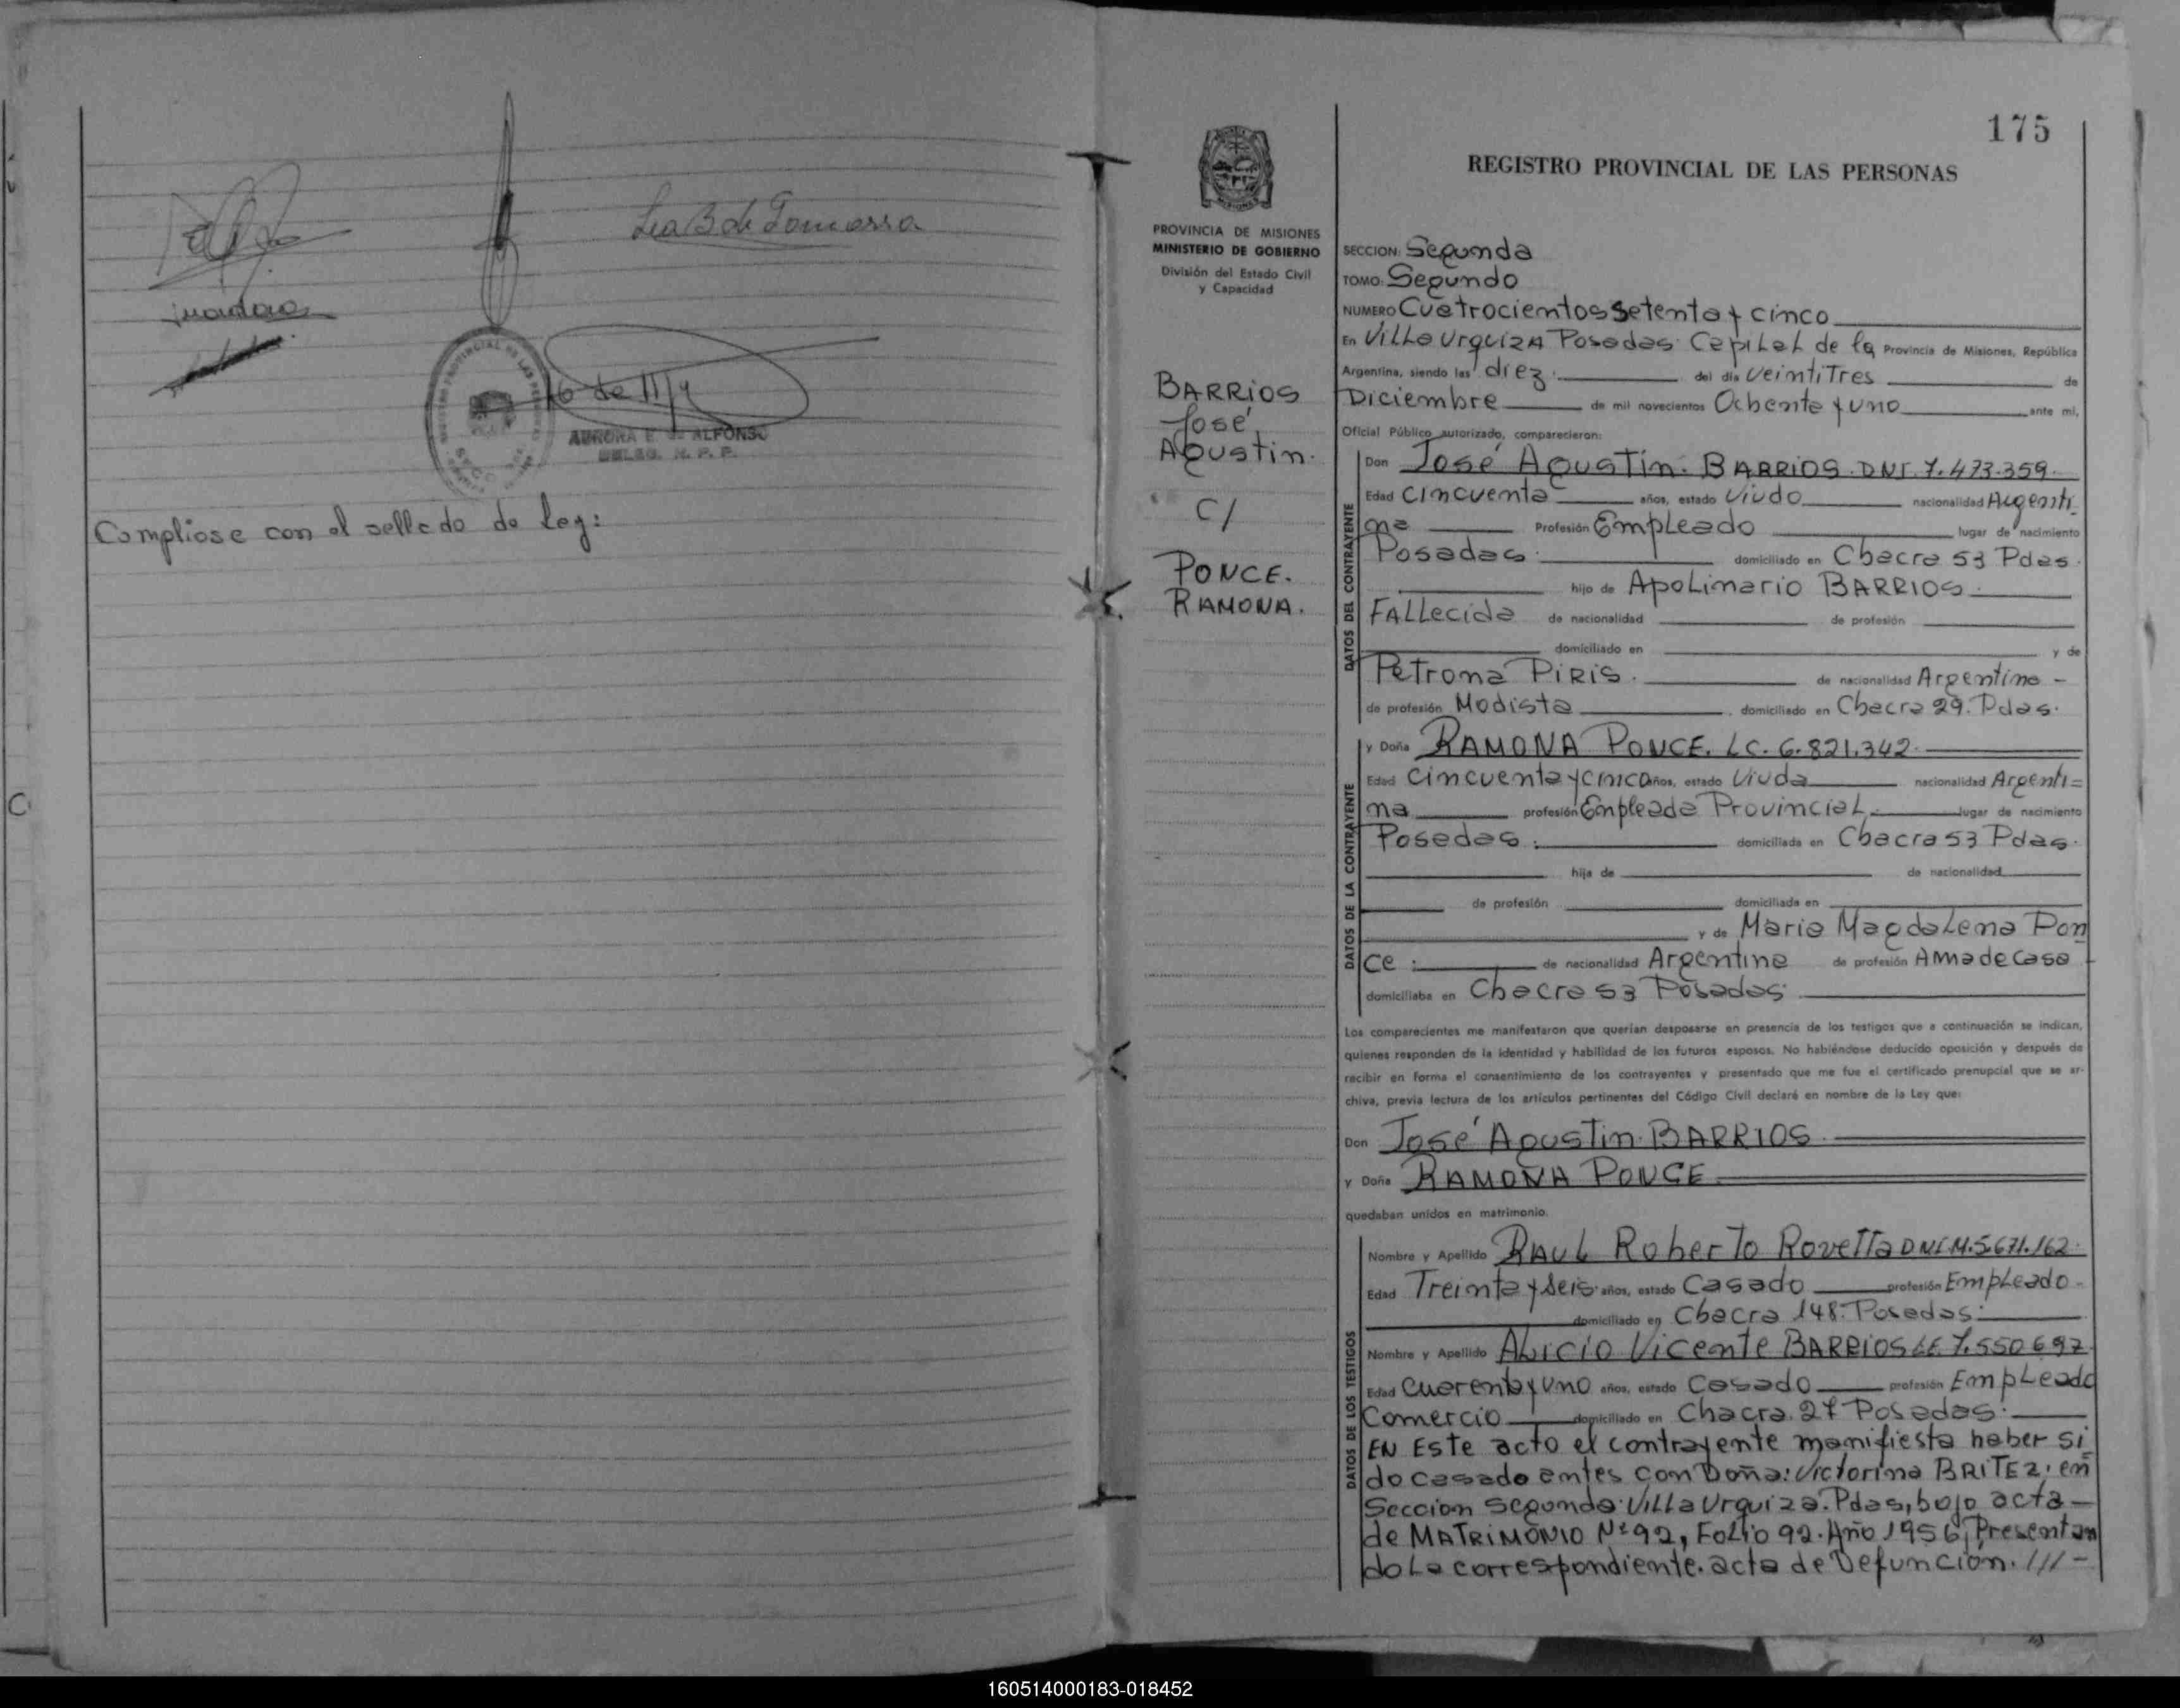 Lea B de Tomassa
AURORA E. de ALFONSO
DELEG. R. P. P.
Compliose con el sellado de Ley:
175
REGISTRO PROVINCIAL DE LAS PERSONAS
PROVINCIA DE MISIONES
MINISTERIO DE GOBIERNO
División del Estado Civil
y Capacidad
BARRIOS
José
Agustin.
C/
PONCE.
RAMONA.
SECCION: Segunda
TOMO: Segundo
NUMERO Cuatrocientos Setenta y cinco
En Villa Urquiza Posadas Capital de la Provincia de Misiones, República
Argentina, siendo las diez del día veintitres de
Diciembre de mil novecientos Ochenta y uno ante mí,
Oficial Público autorizado, comparecieron:
DATOS DEL CONTRAYENTE
Don José Agustin. BARRIOS. DNI. 7.473.359.
Edad Cincuenta años, estado Viudo nacionalidad Argenti-
na Profesión Empleado lugar de nacimiento
Posadas. domiciliado en Chacra 53 Pdas.
hijo de Apolinario BARRIOS.
Fallecida de nacionalidad de profesión
domiciliado en y de
Petrona PIRIS. de nacionalidad Argentina -
de profesión Modista domiciliado en Chacra 29. Pdas.
DATOS DE LA CONTRAYENTE
y Doña RAMONA PONCE. LC. 6.821.342.
Edad Cincuenta y cinco años, estado Viuda nacionalidad Argenti=
na profesión Empleada Provincial. lugar de nacimiento
Posadas. domiciliada en Chacra 53 Pdas.
hija de de nacionalidad
de profesión domiciliada en
y de Maria Magdalena Pon
ce: de nacionalidad Argentina de profesión Ama de Casa
domiciliaba en Chacra 53 Posadas.
Los comparecientes me manifestaron que querían desposarse en presencia de los testigos que a continuación se indican,
quienes responden de la identidad y habilidad de los futuros esposos. No habiéndose deducido oposición y después de
recibir en forma el consentimiento de los contrayentes y presentado que me fue el certificado prenupcial que se ar-
chiva, previa lectura de los artículos pertinentes del Código Civil declaré en nombre de la Ley que:
Don José Agustin. BARRIOS
y Doña RAMONA PONCE
quedaban unidos en matrimonio.
DATOS DE LOS TESTIGOS
Nombre y Apellido RAUL Roberto Rovetta DNI.M.5.671.162.
Edad Treinta y seis años, estado Casado profesión Empleado-
domiciliado en Chacra 148. Posadas.
Nombre y Apellido Alicio Vicente BARRIOS LE 7.550697
Edad Cuarenta y uno años, estado Casado profesión Empleado
Comercio domiciliado en Chacra. 27 Posadas.
EN Este acto el contrayente manifiesta haber si
do casado antes con Doña: Victorina BRITEZ, en
Seccion segunda Villa Urquiza. Pdas, bajo acta
de MATRIMONIO Nº 92, Folio 92. Año 1956, Presentan
do la correspondiente. acta de Defunción. ///-
160514000183-018452